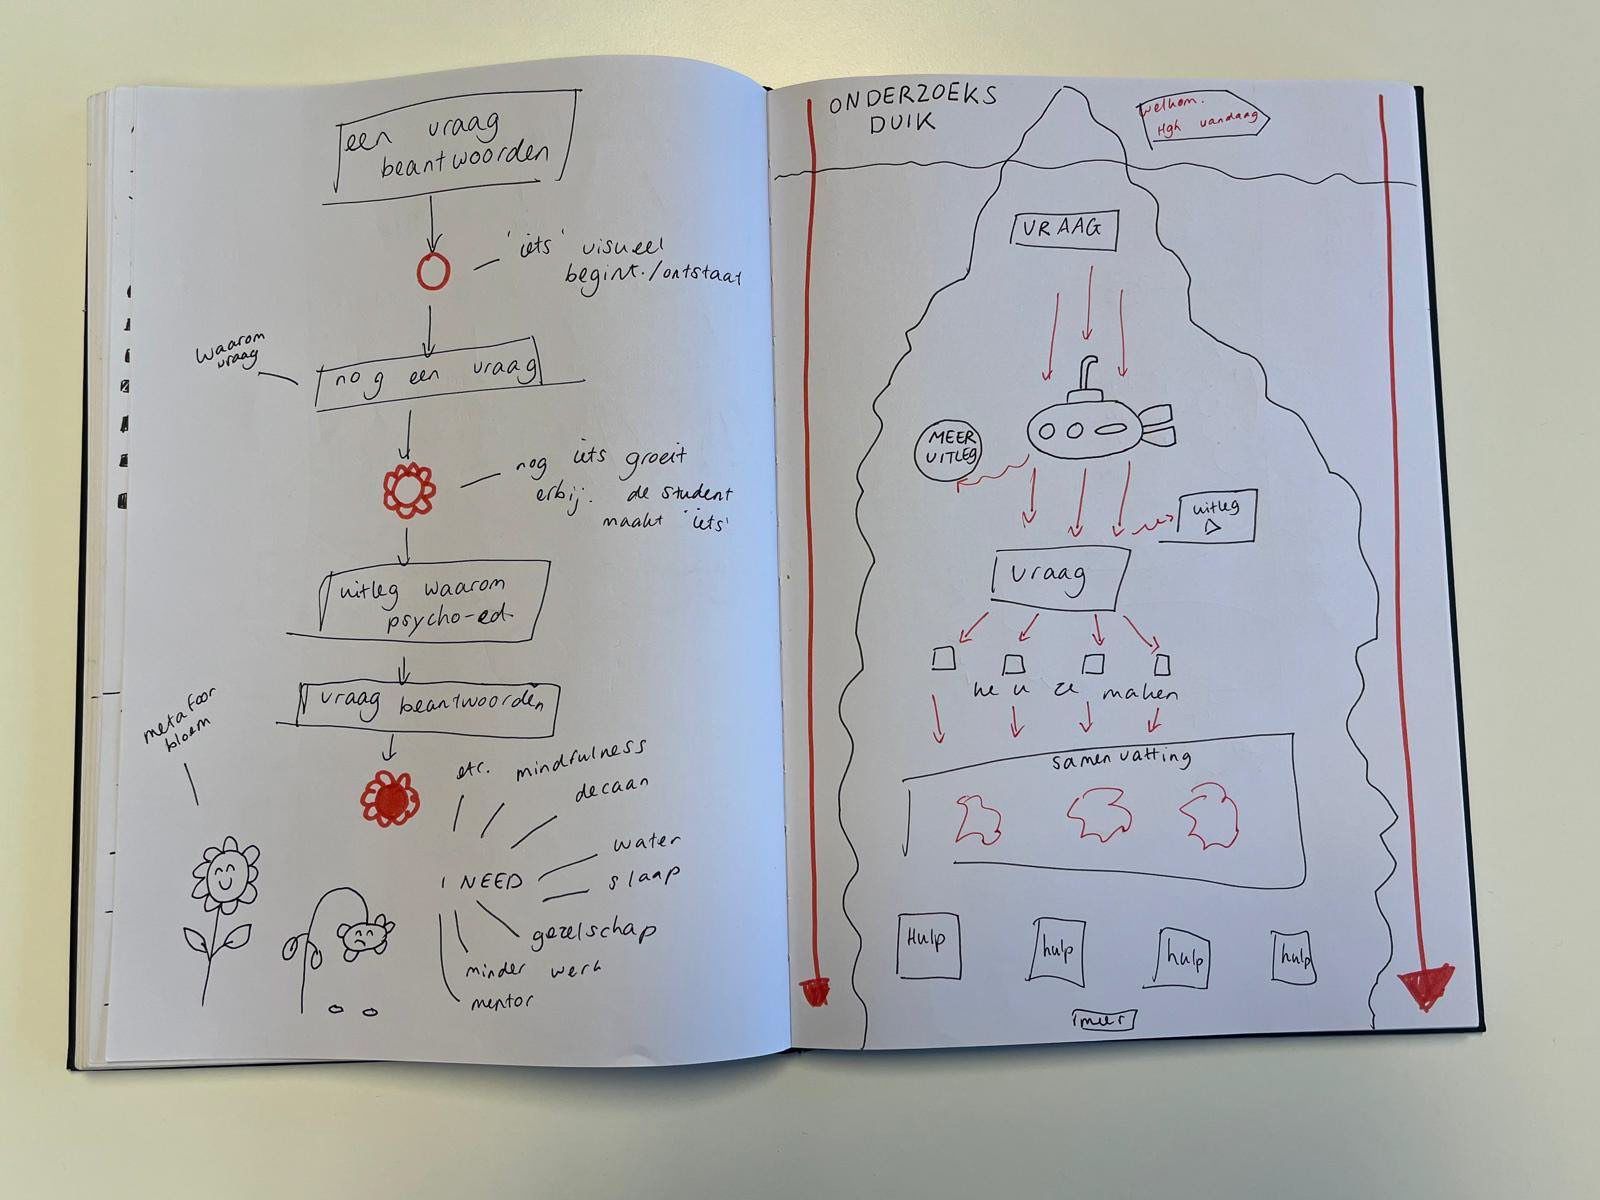 een vraag
beantwoorden
'iets' visueel
begint./ontstaat
waarom
vraag
nog een vraag
nog iets groeit
erbij. de student
maakt 'iets'
uitleg waarom
psycho-ed.
vraag beantwoorden
metafoor
bloem
etc. mindfulness
decaan
water
I NEED
slaap
gezelschap
minder werk
mentor
ONDERZOEKS
DUIK
welkom.
Hgh vandaag
VRAAG
MEER
UITLEG
uitleg
vraag
maken
samenvatting
Hulp
hulp
hulp
hulp